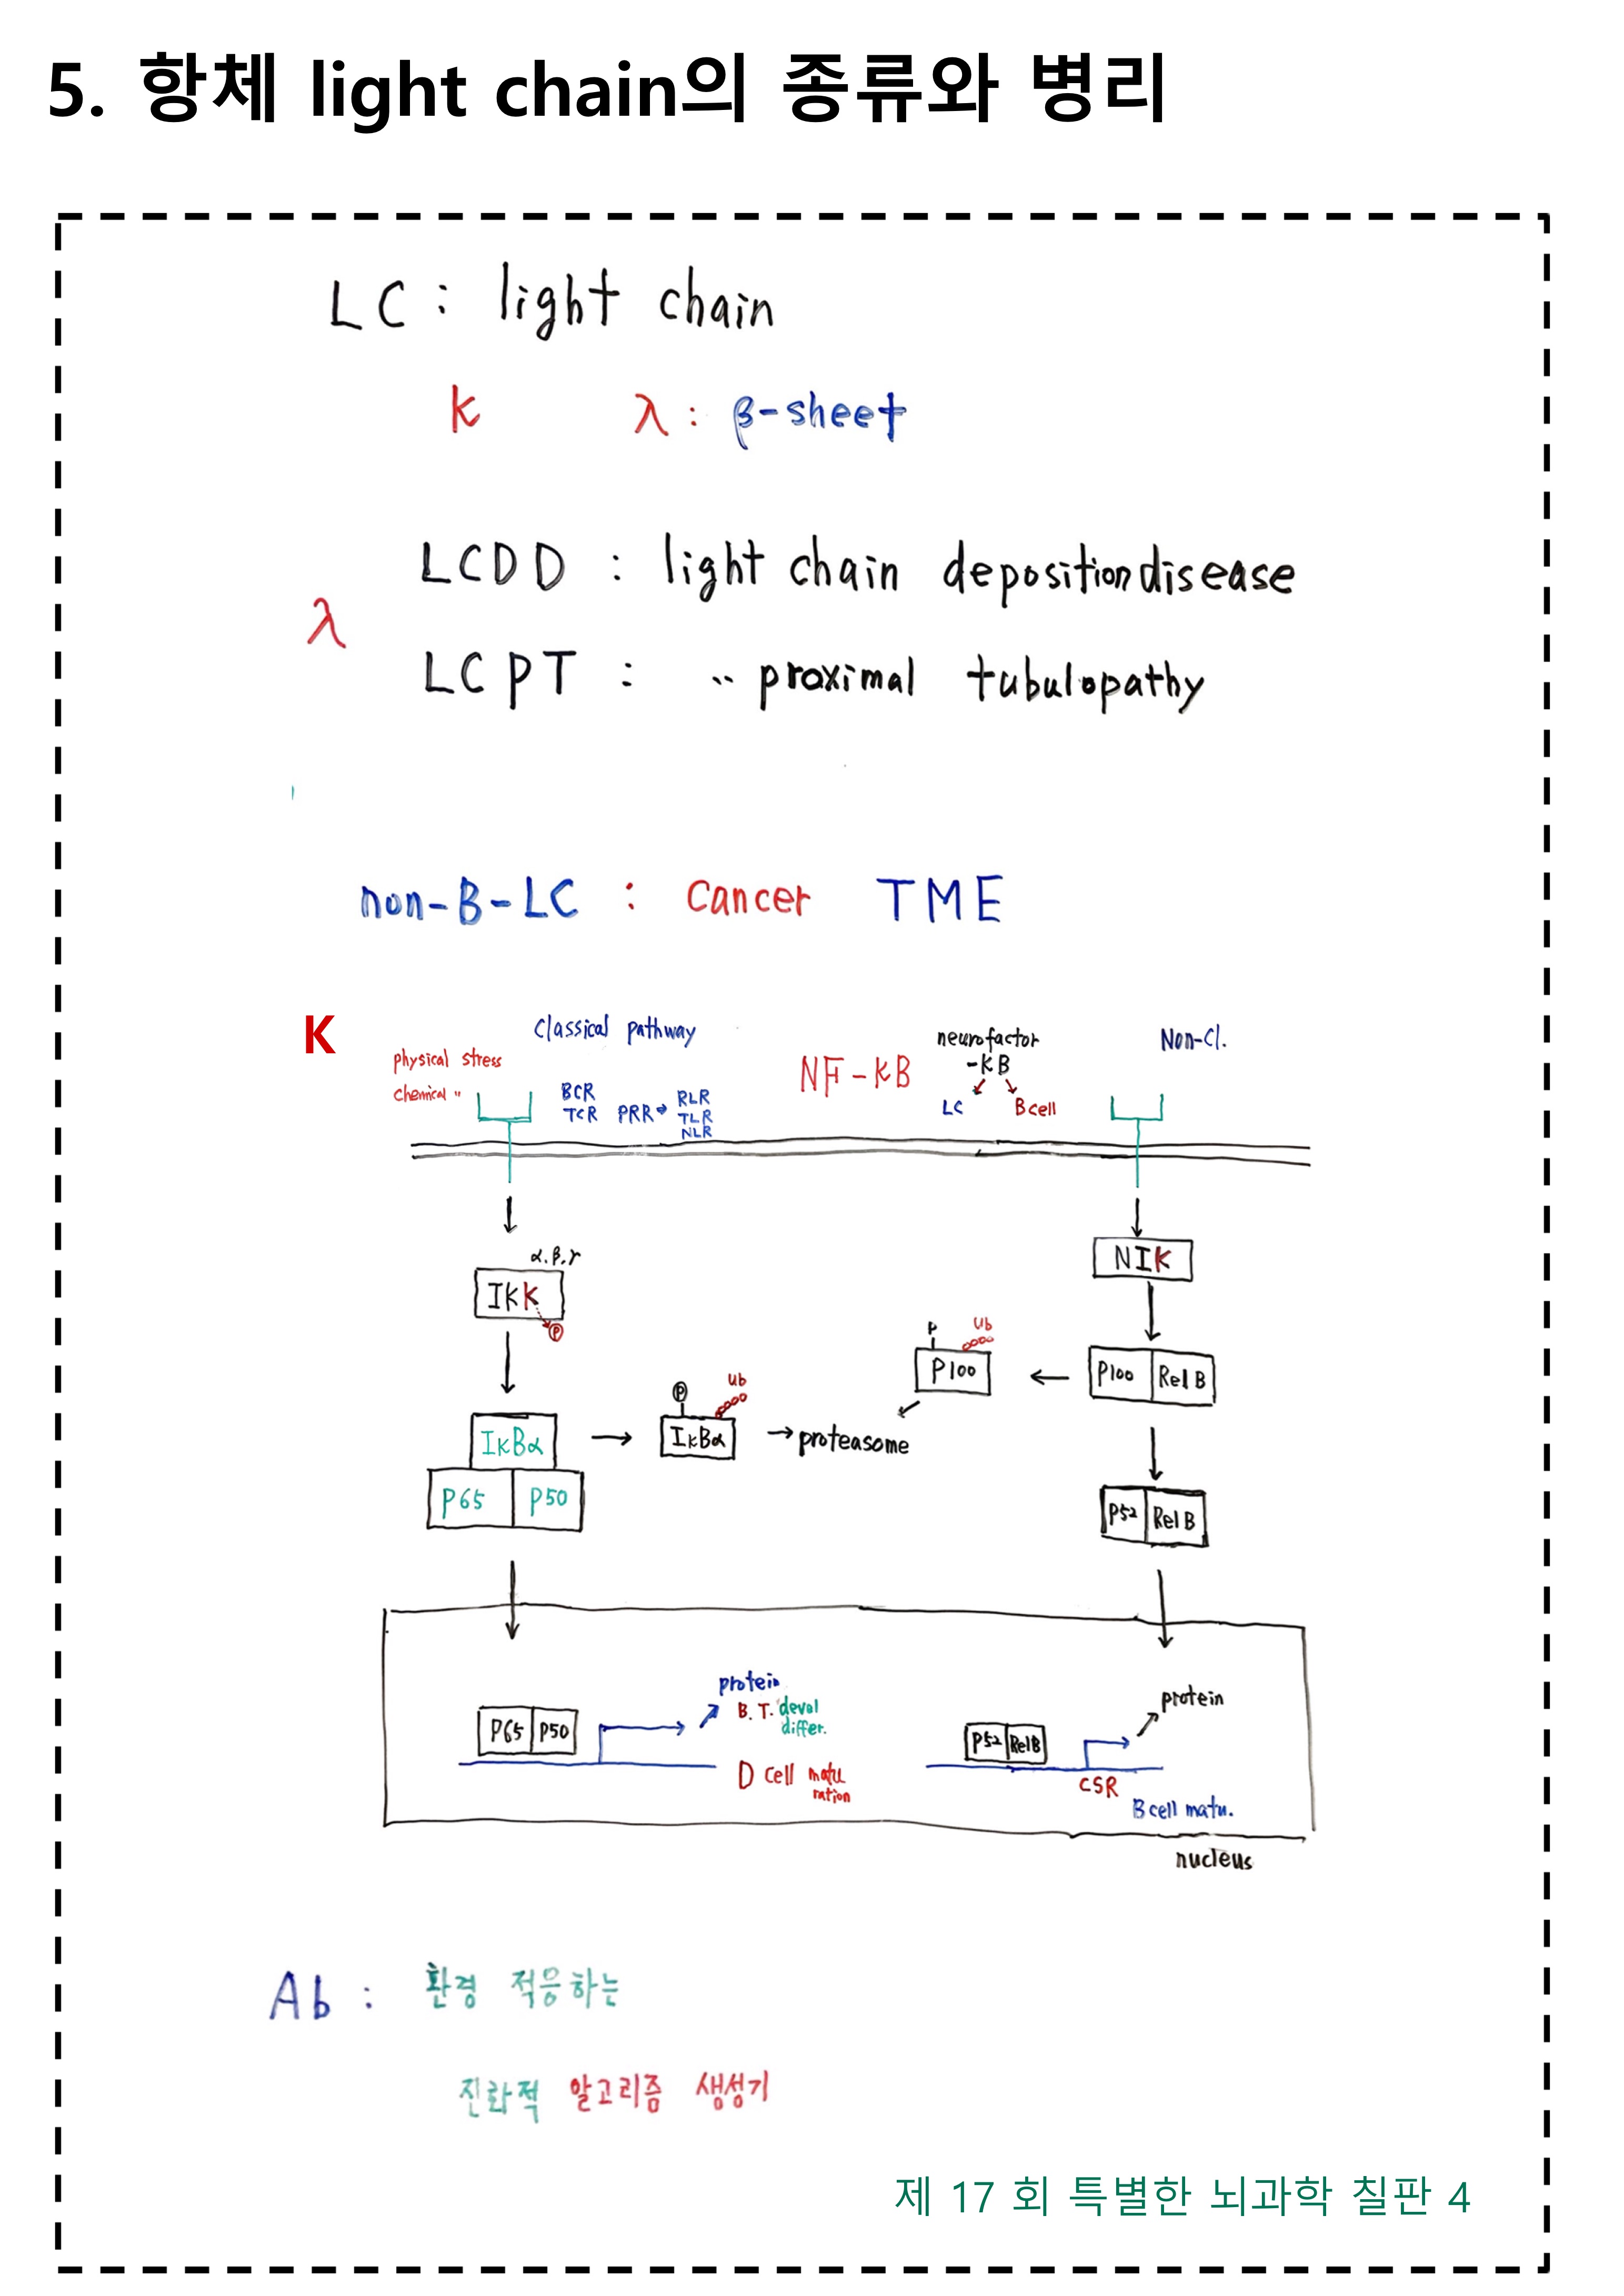 5. 항체 light chain의 종류와 병리
LC : light chain
K λ : β-sheet
LCDD : light chain deposition disease
λ
LCPT : 〃 proximal tubulopathy
non-B-LC : cancer TME
K
classical pathway
physical stress
chemical 〃
BCR
TCR
PRR→
RLR
TLR
NLR
NF-κB
neurofactor
-κB
LC B cell
Non-Cl.
α.β.γ
IKK
P
NIK
P Ub
P100
P100 RelB
P Ub
IκBα
IκBα
→proteasome
P65 P50
P52 RelB
protein
B. T. devel
differ.
P65 P50
D cell matu
ration
protein
P52 RelB
CSR
B cell matu.
nucleus
Ab : 환경 적응하는
진화적 알고리즘 생성기
제 17 회 특별한 뇌과학 칠판 4